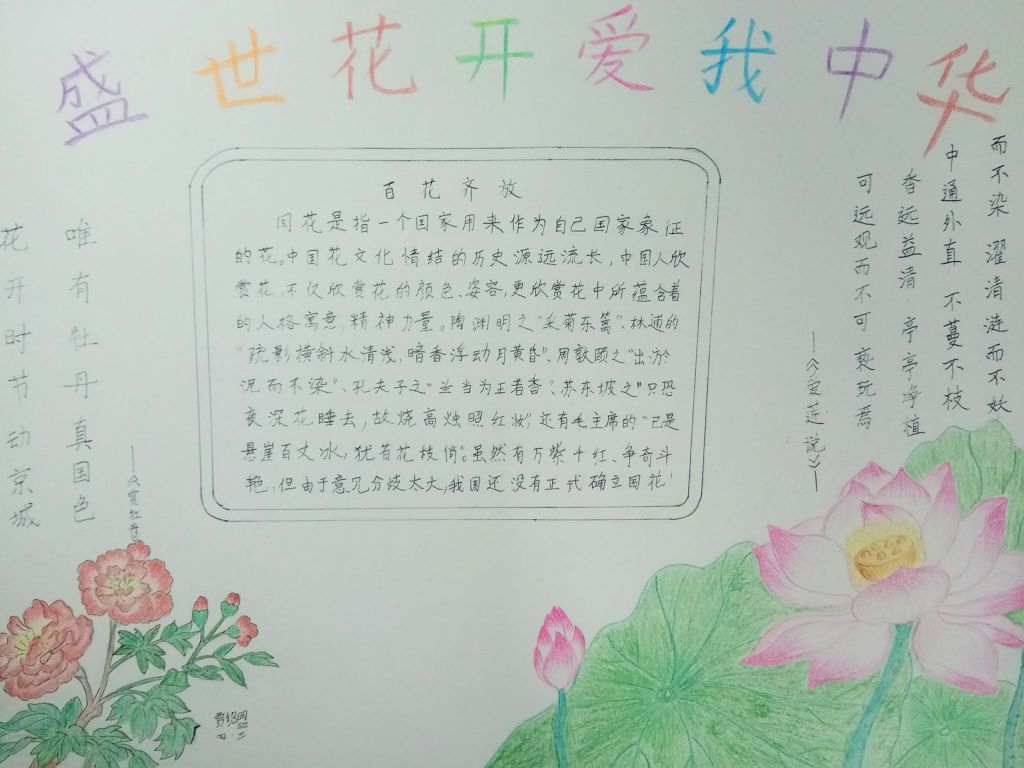 盛世花开爱我中华
百花齐放
国花是指一个国家用来作为自己国家象征
的花。中国花文化情结的历史源远流长,中国人欣
赏花,不仅欣赏花的颜色、姿容,更欣赏花中所蕴含着
的人格寓意,精神力量。陶渊明之“采菊东篱”、林逋的
“疏影横斜水清浅,暗香浮动月黄昏”、周敦颐之“出淤
泥而不染”、孔夫子之“兰当为王者香”、苏东坡之“只恐
夜深花睡去,故烧高烛照红妆”,还有毛主席的“已是
悬崖百丈冰,犹有花枝俏”。虽然有万紫千红、争奇斗
艳,但由于意见分歧太大,我国还没有正式确立国花!
而不染 濯清涟而不妖
中通外直 不蔓不枝
香远益清,亭亭净植
可远观而不可亵玩焉
——《爱莲说》——
唯有牡丹真国色
花开时节动京城
——《赏牡丹
四·三